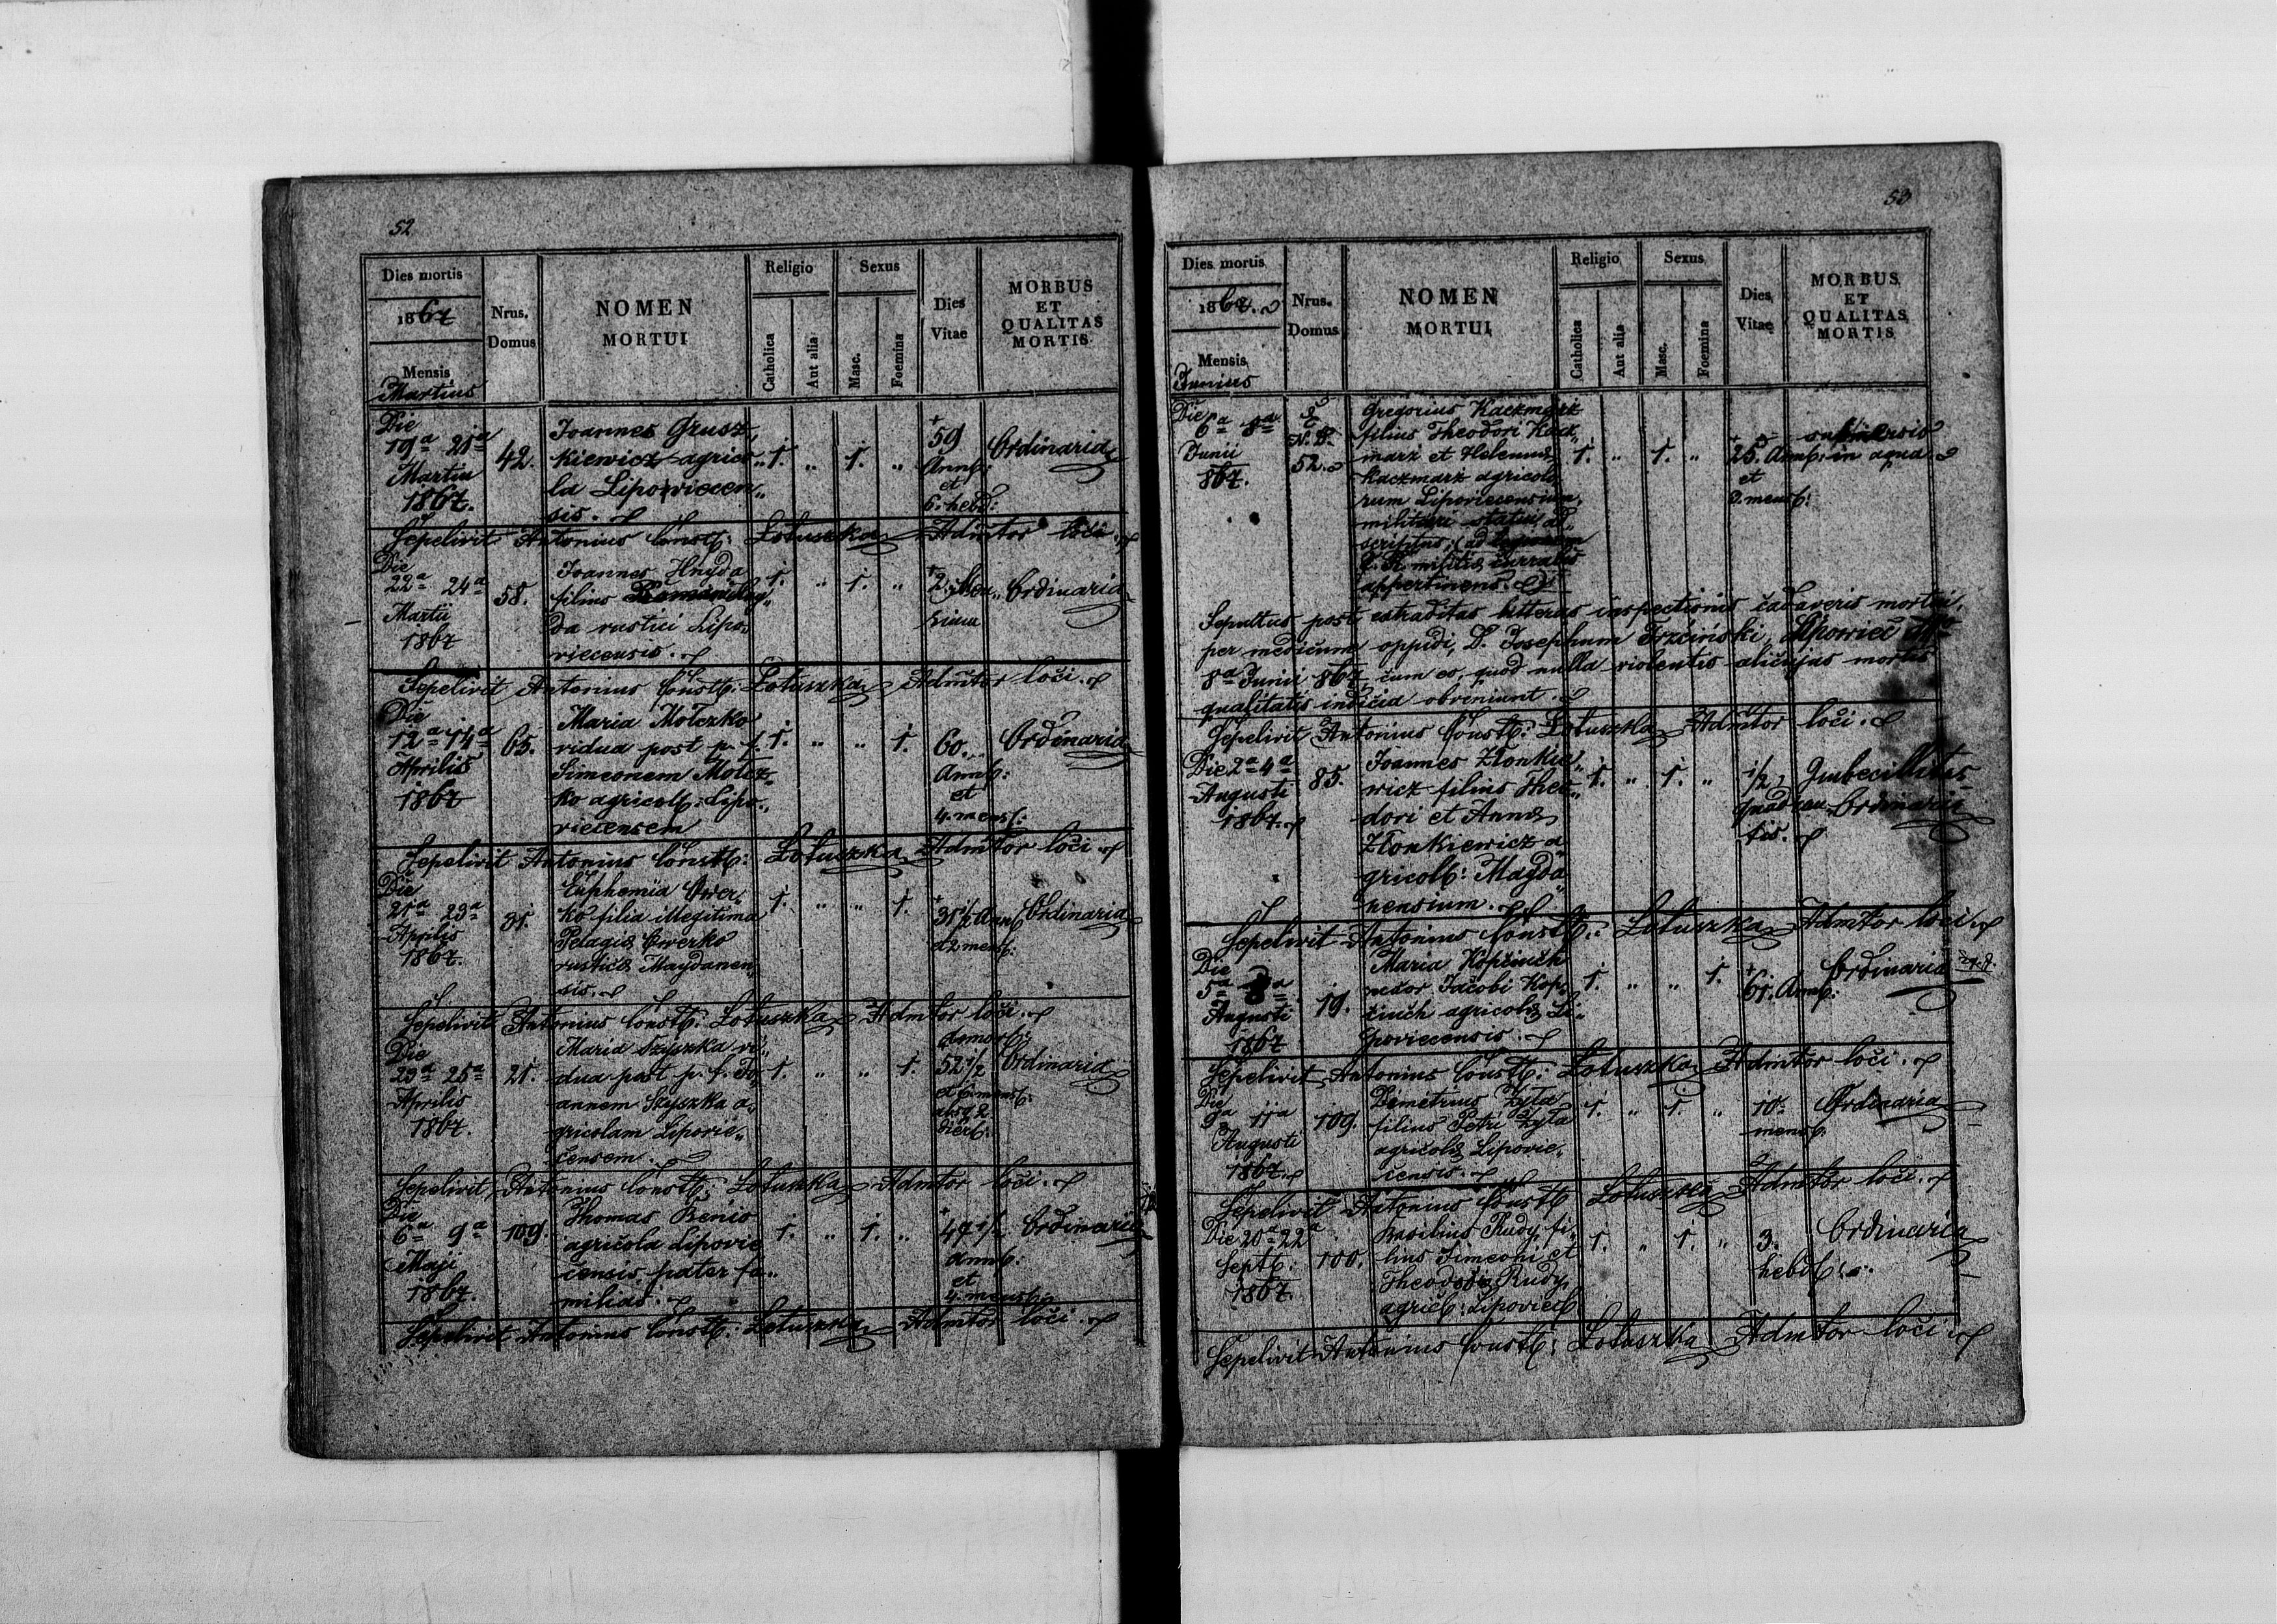 52
Dies mortis
1867
Mensis
Martius
Nrus.
Domus
NOMEN
MORTUI
Religio
Catholica
Aut alia
Sexus
Masc.
Foemina
Dies
Vitae
MORBUS
ET
QUALITAS
MORTIS
Die
19a 21a
Martii
1867.
42.
Joannes Grusz„
kiewicz agrico„
la Lipowiecen„
sis.
1. „ 1. „
59
Annb:
et
6. hebd:
Ordinaria
Sepelivit Antonius Constb: Łotuszka Admtor loci.
Die
22a 24a
Martii
1867
58.
Joannes Hnyda
filius Romani Hny„
da rustici Lipo„
viecensis.
1. „ 1. „
2. Men„
sium
Ordinaria
Sepelivit Antonius Constb: Łotuszka Admtor loci.
Die
12a 14a
Aprilis
1867
65.
Maria Mołczko
vidua post p. f.
Simeonem Mołcz„
ko agricolb: Lipo„
viecensem
1. „ „ 1.
60.
Annb:
et
4. mensb:
Ordinaria
Sepelivit Antonius Constb: Łotuszka Admtor loci.
Die
21a 23a
Aprilis
1867.
31.
Euphemia Ower„
ko filia illegitima
Pelagiæ Owerko
rusticæ Maydanen„
sis.
1. „ „ 1.
31½ Annb
et 2 mensb:
Ordinaria
Sepelivit Antonius Constb: Łotuszka Admtor loci.
Die
23a 25a
Aprilis
1867.
21.
Maria Szyszka vi„
dua post p. f. Jo„
annem Szyszka a„
gricolam Lipovie„
censem.
1. „ „ 1.
52 1/2
et 6 mensb:
absq 2.
dierb:
Ordinaria
Sepelivit Antonius Constb: Łotuszka Admtor loci.
Die
6a 9a
Maji
1867.
109.
Thomas Benio
agricola Lipovie„
censis, pater fa„
milias.
1. „ 1. „
47 1/2
Annb:
et
4. mensb:
Ordinaria
Sepelivit Antonius Constb: Łotuszka Admtor loci.
53
Dies mortis
1867.
Mensis
Junius
Nrus.
Domus
NOMEN
MORTUI
Religio
Catholica
Aut alia
Sexus
Masc.
Foemina
Dies
Vitae
MORBUS
ET
QUALITAS
MORTIS
Die
6a 8a
Junii
867.
52.
Gregorius Kaczmarz
filius Theodori Kacz„
marz et Helenæ
Kaczmarz agricolo„
rum Lipoviecensium,
militari statui ad„
scriptus, (ad
militis
appertinens.)
1. „ 1. „
25. Annb:
et
2. mensb:
submersio
in aqua
Sepultus post extraditas litteras inspectionis cadaveris mortui,
per medicum oppidi, D. Josephum Trzciński, Lipowiec
8a Junii 867, cum eo, quod nulla violentis alicujus mortis
qualitatis indicia obveniunt.
Sepelivit Antonius Constb: Łotuszka Admtor loci.
Die 2a 4a
Augusti
1867.
85.
Joannes Złonkie„
wicz filius Theo„
dori et Annæ
Złonkiewicz a„
gricolb: Mayda„
nensium.
1. „ 1. „
1/2
quadran„
tis.
Imbecillitas
Ordinaria
Sepelivit Antonius Constb: Łotuszka Admtor loci.
Die
5a 8a
Augusti
1867
19.
Maria Kopciuch
uxor Jacobi Kop„
ciuch agricolæ Li„
poviecensis.
1. „ „ 1.
61. Annb:
Ordinaria
Sepelivit Antonius Constb: Łotuszka Admtor loci.
Die
9a 11a
Augusti
1867.
109.
Demetrius Zyła
filius Petri Zyła
agricolæ Lipovie„
censis.
1. „ 1. „
10.
mensb:
Ordinaria
Sepelivit Antonius Constb Łotuszka Admtor loci.
Die 20a 22a
Septb:
1867.
100.
Basilius Rudy, fi„
lius Simeoni et
Theodosiæ Rudy,
agricb: Lipoviecb
1. „ 1. „
3.
hebdb:
Ordinaria
Sepelivit Antonius Constb: Łotuszka Admtor loci.